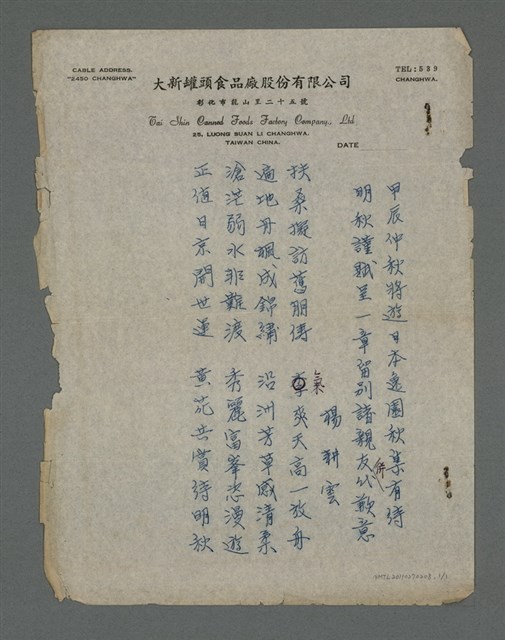 CABLE ADDRESS.
"2450 CHANGHWA"
TEL: 539
CHANGHWA.
大新罐頭食品廠股份有限公司
彰化市龍山里二十五號
Tai Shin Canned Foods Factory Company., Ltd
25, LUONG SUAN LI CHANGHWA.
TAIWAN CHINA.
DATE
甲辰仲秋將遊日本逸園秋集有待
明秋謹賦呈一章留別諸親友代歉意
楊耕雲
扶桑擬訪舊朋儔 氣爽天高一放舟
遍地丹楓成錦繡 沿洲芳草感清柔
滄茫弱水非難渡 秀麗富峯恣漫遊
正值日京開世運 黃花共賞待明秋